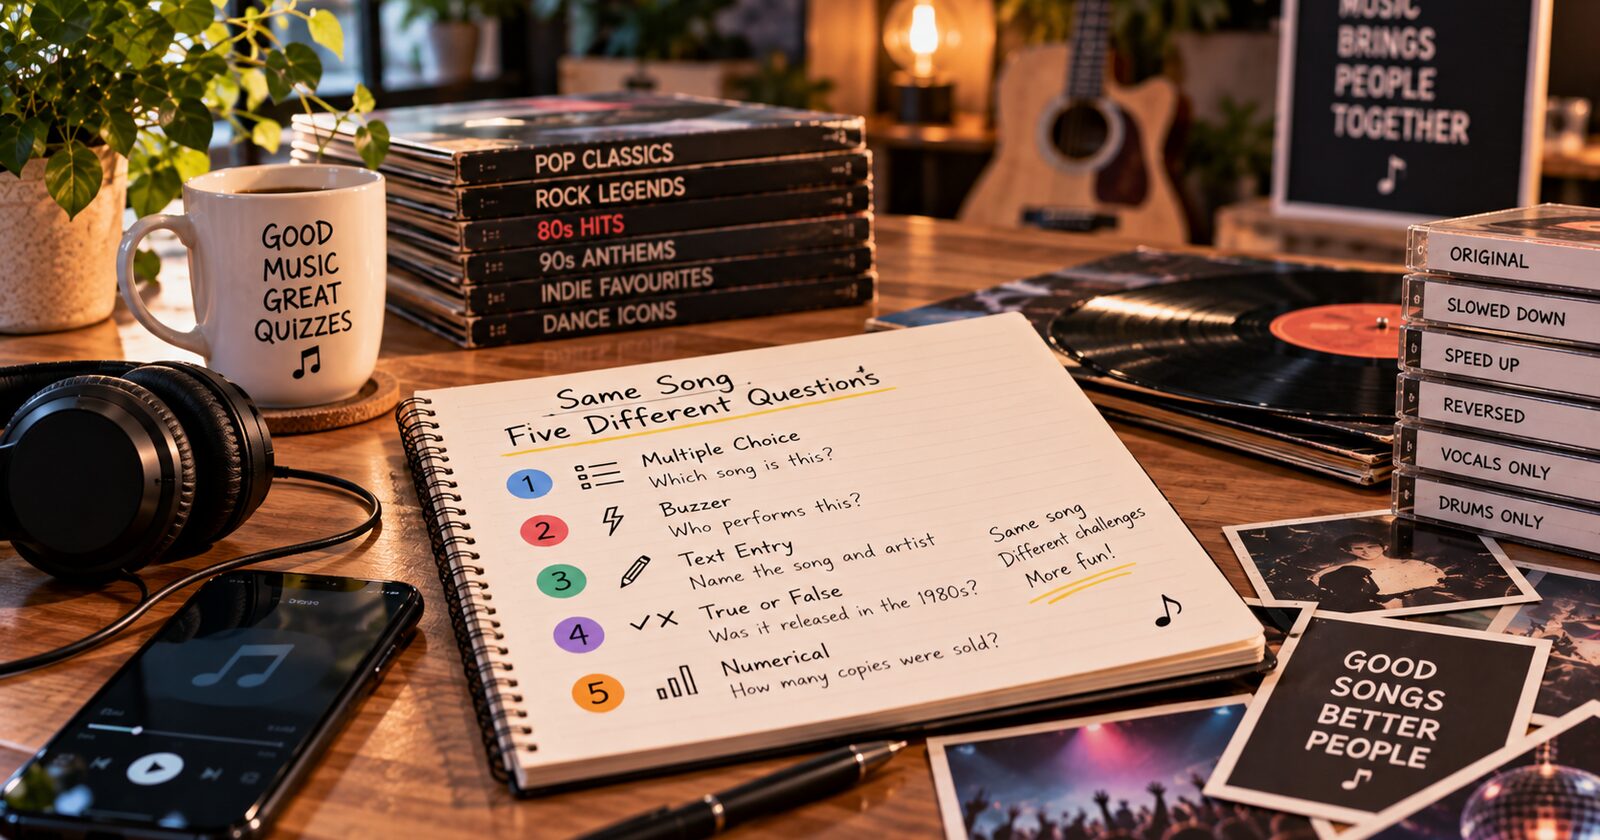 MUSIC
BRINGS
PEOPLE
TOGETHER
POP CLASSICS
ROCK LEGENDS
80s HITS
90s ANTHEMS
INDIE FAVOURITES
DANCE ICONS
GOOD
MUSIC
GREAT
QUIZZES
ORIGINAL
SLOWED DOWN
SPEED UP
REVERSED
VOCALS ONLY
DRUMS ONLY
Same Song
Five Different Questions
1
Multiple Choice
Which song is this?
2
Buzzer
Who performs this?
3
Text Entry
Name the song and artist
4
True or False
Was it released in the 1980s?
5
Numerical
How many copies were sold?
Same song
Different challenges
More fun!
GOOD
SONGS
BETTER
PEOPLE